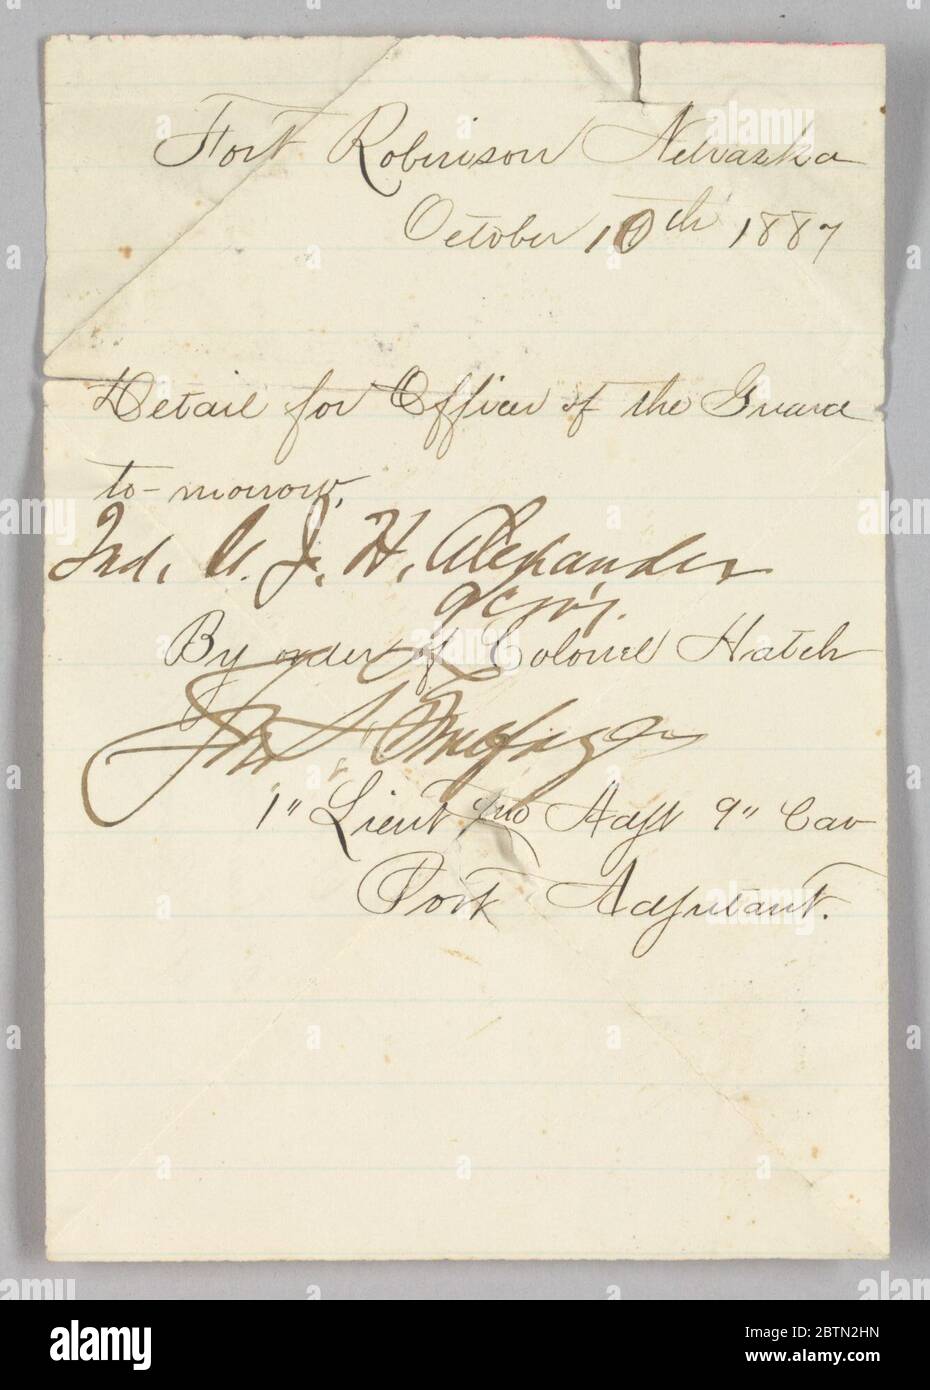 Fort Robinson Nebraska
October 10th 1887
Detail for Officer of the Guard
to-morrow.
J. H. Alexander
By order of Colonel Hatch
1" Lieut and Adjt 9" Cav
Post Adjutant.
alamy
Image ID: 2BTN2HN
www.alamy.com